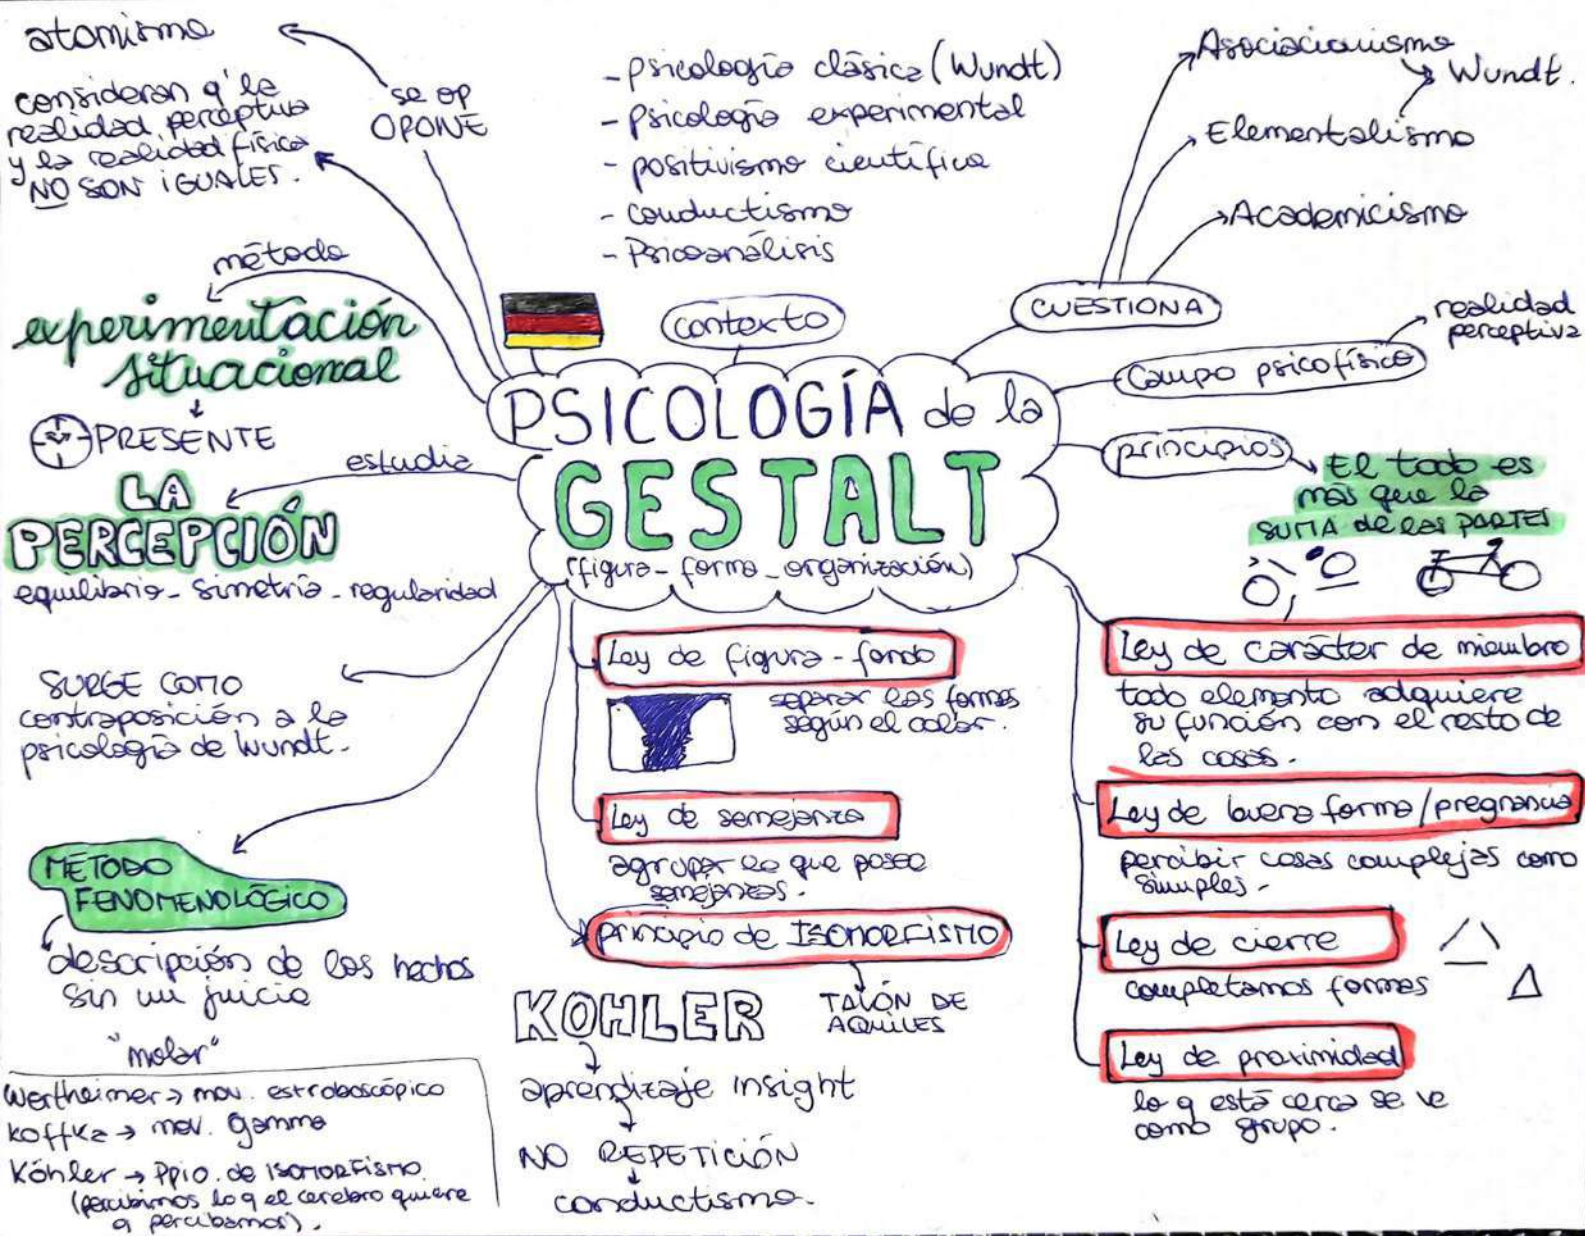 atomismo
se op
OPONE
consideran q' la
realidad perceptiva
y la realidad física
NO SON IGUALES.
método
experimentación
situacional
PRESENTE
estudia
LA
PERCEPCIÓN
equilibrio - simetría - regularidad
SURGE COMO
contraposición a la
psicología de Wundt.
MÉTODO
FENOMENOLÓGICO
descripción de los hechos
sin un juicio
"molar"
Wertheimer → mov. estroboscópico
Koffka → mov. Gamma
Köhler → Ppio. de ISOMORFISMO
(percibimos lo q el cerebro quiere
q percibamos).
- psicología clásica (Wundt)
- Psicología experimental
- positivismo científico
- conductismo
- Psicoanálisis
contexto
PSICOLOGÍA de la
GESTALT
(figura - forma - organización)
Ley de figura - fondo
separar las formas
según el color.
Ley de semejanza
agrupar lo que posee
semejanzas.
principio de ISOMORFISMO
TALÓN DE
AQUILES
KOHLER
aprendizaje insight
NO REPETICIÓN
conductismo.
CUESTIONA
Asociacionismo
Wundt.
Elementalismo
Academicismo
Campo psicofísico
realidad
perceptiva
principios
El todo es
más que la
SUMA de las PARTES
Ley de carácter de miembro
todo elemento adquiere
su función con el resto de
las cosas.
Ley de buena forma / pregnancia
percibir cosas complejas como
simples -
Ley de cierre
completamos formas
Ley de proximidad
lo q está cerca se ve
como grupo.